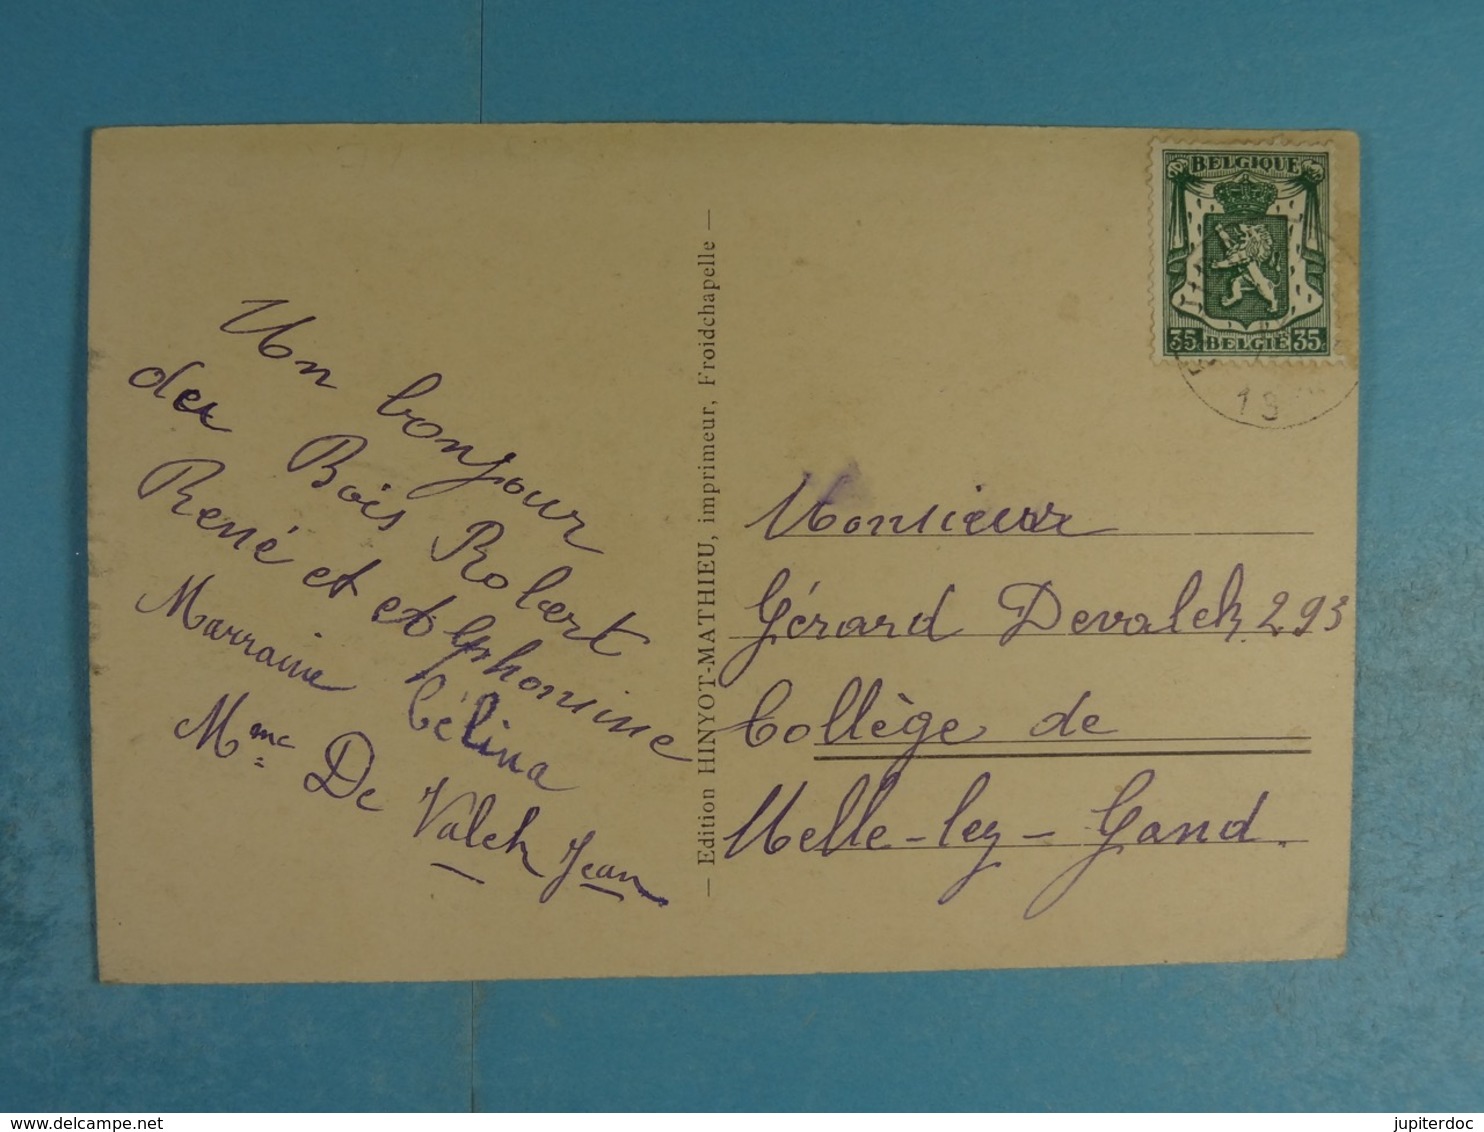 Un bonjour
des Bois Robert
René et et Alphonsine
Marraine Célina
Mme De Valck Jean
— Edition HINYOT-MATHIEU, imprimeur, Froidchapelle —
BELGIQUE
35c BELGIË 35c
13
Monsieur
Gérard Devalck 293
Collège de
Melle-lez-Gand.
www.delcampe.net
jupiterdoc